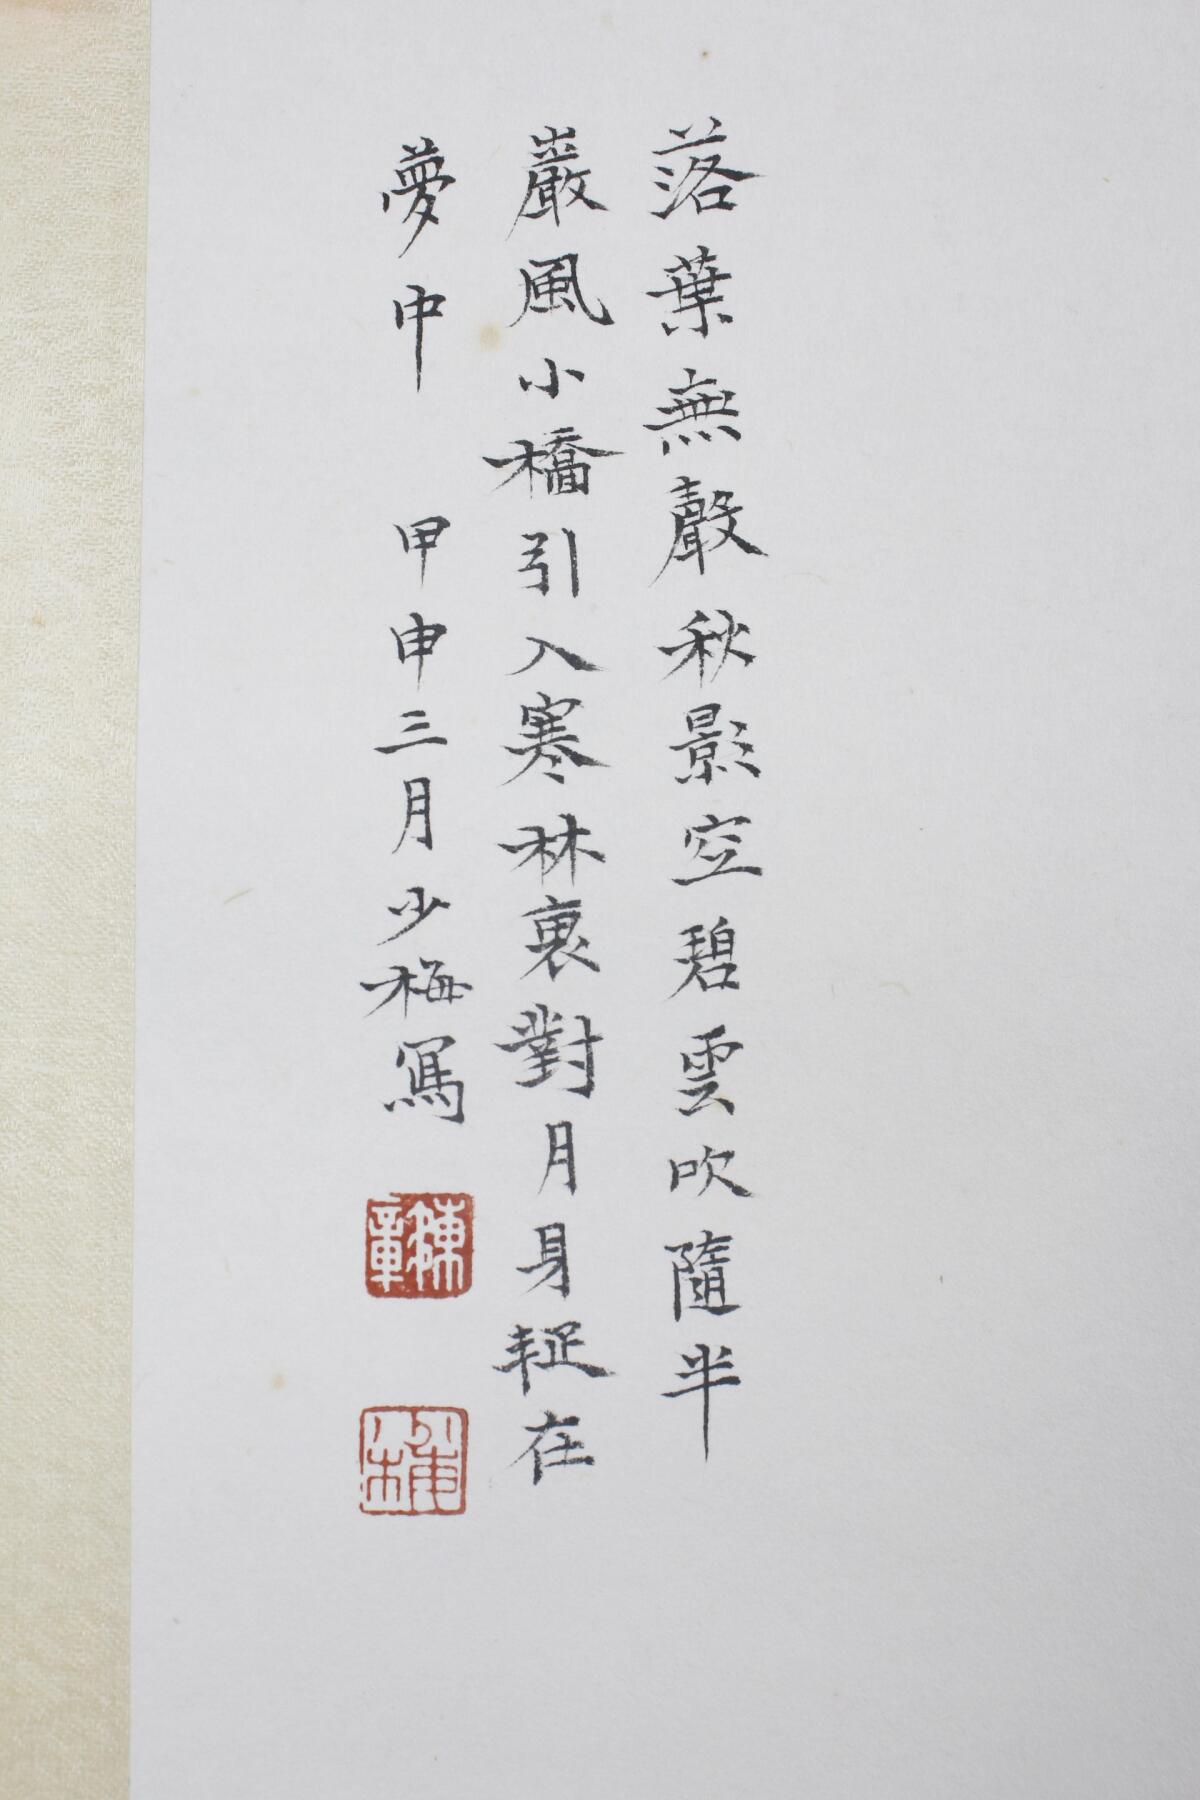 落葉無聲秋影空碧雲吹隨半
巖風小橋引入寒林裏對月身疑在
夢中 甲申三月少梅寫
陳
章
少梅